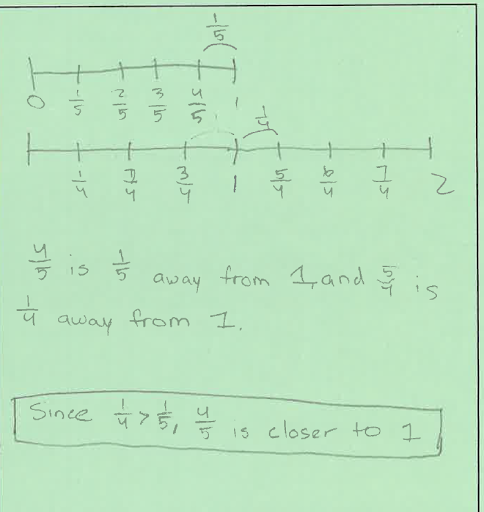 1/5
0 1/5 2/5 3/5 4/5 1
1/4
1/4 2/4 3/4 1 5/4 6/4 7/4 2
4/5 is 1/5 away from 1, and 5/4 is
1/4 away from 1.
Since 1/4 > 1/5, 4/5 is closer to 1